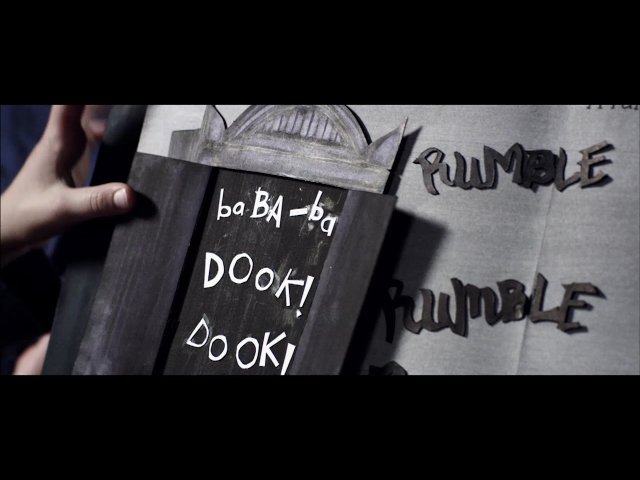 baBA-ba
DOOK!
DOOK!
RUUMBLE
RUUMBLE